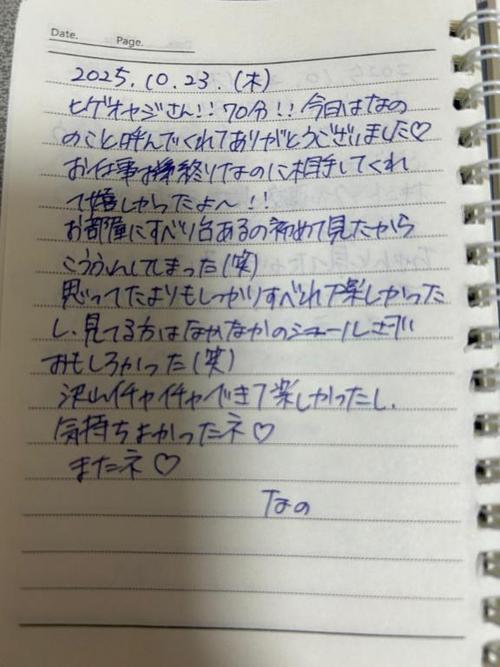 Date.
Page.
2025.10.23.(木)
ヒゲオヤジさん!! 70分!! 今日はなの
のこと呼んでくれてありがとうございました♡
お仕事お疲終りなのに相手してくれ
て嬉しかったよ〜!!
お部屋にすべり台あるの初めて見たから
こうふんしてしまった(笑)
思ってたよりもしっかりすべれて楽しかった
し、見てる方はなかなかのシュールさで
おもしろかった(笑)
沢山イチャイチャできて楽しかったし、
気持ちよかったネ♡
またネ♡
なの